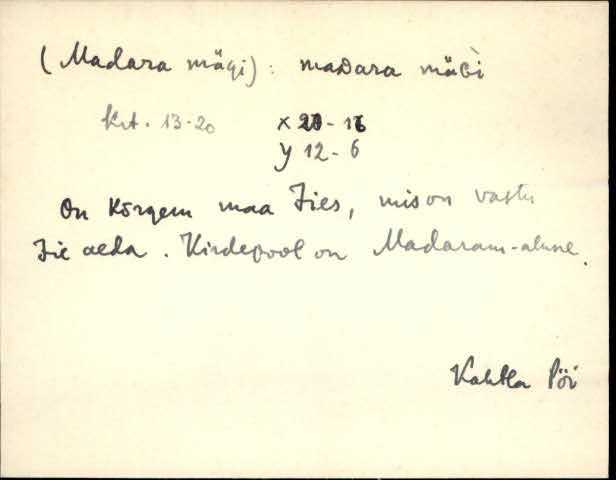 (Madara mägi): maDara mäGì
Krt. 13-20 x 20-16
y 12-6
On kõrgem maa Jies, mis on vastu
Jie aeda. Kirdepool on Madaram-alune.
Kahtla Pöi